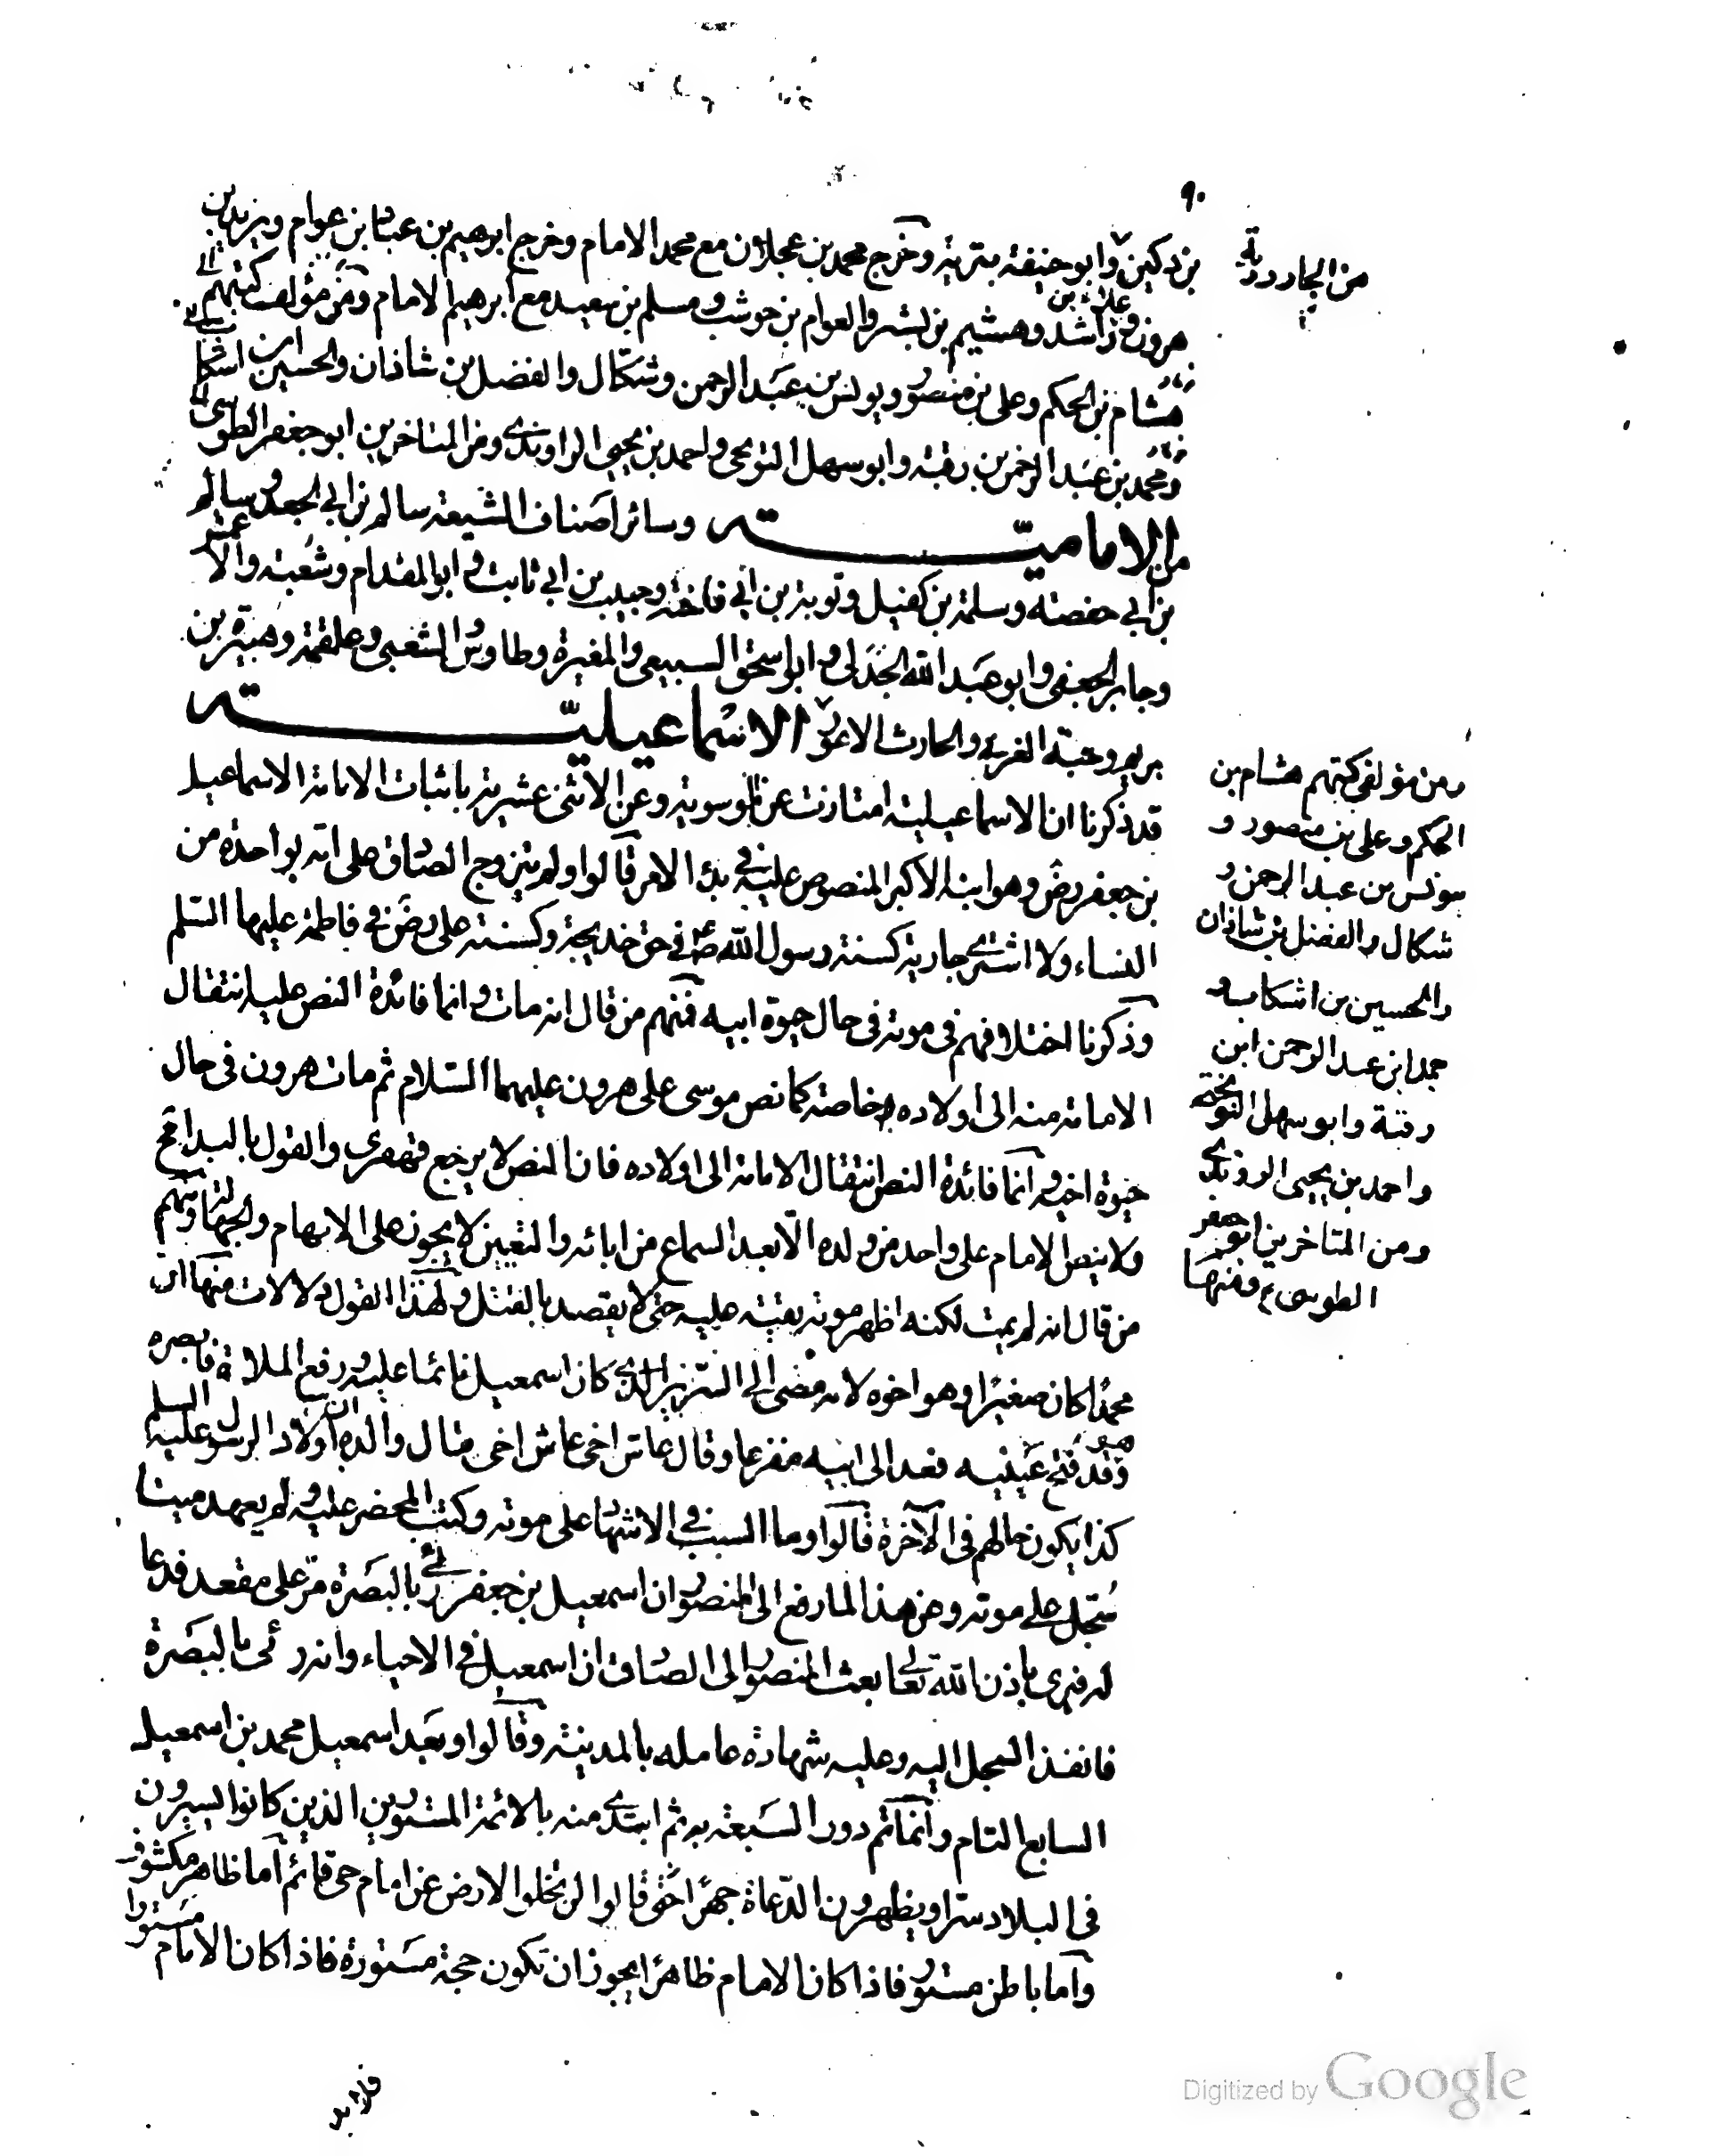 ٩٠
بن دكين وابو حنيفة بترية وخرج محمد بن عجلان مع محمد الامام وخرج ابرهيم بن عباد بن عوام ويزيد بن
هرون وعلاء بن راشد وهشيم بن بشر والعوام بن حوشب ومسلم بن سعيد مع ابرهيم الامام ومن مؤلف كتبهم
هشام بن الحكم وعلى بن منصور ويونس بن عبد الرحمن وشكال والفضل بن شاذان والحسين ابن اشكاب
ومحمد بن عبد الرحمن بن رقبة وابو سهل النوبختى واحمد بن يحيى الراوندى ومن المتاخرين ابو جعفر الطوسى
من الاماميّة وسائر اصناف الشيعة سالم بن ابى الجعد وسالم
بن ابى حفصة وسلمة بن كفيل وتوبة بن ابى فاختة وحبيب بن ابى ثابت وابو المقدام وشعبة والاعمش
وجابر الجعفى وابو عبد الله الجدلى وابو اسحق السبيعى والمغيرة وطاوس والشعبى وعلقمة وهبيرة بن
بريم وحبة العرنى والحارث الاعور الاسماعيليّة
قد ذكرنا ان الاسماعيلية امتازت عن الموسوية وعن الاثنى عشرية باثبات الامامة الاسماعيل
بن جعفر رض وهو ابنه الاكبر المنصوص عليه فى بدء الامر قالوا ولم يتزوج الصادق على امه بواحدة من
النساء ولا اشترى جارية كسنة رسول الله صلعم فى حق خديجة وكسنة على رض فى فاطمة عليها السلم
وذكرنا اختلافهم فى موته فى حال حيوة ابيه فمنهم من قال انه مات وانما فائدة النص عليه انتقال
الامامة منه الى اولاده خاصة كما نص موسى على هرون عليهما السلام ثم مات هرون فى حال
حيوة اخيه وانما فائدة النص انتقال الامامة الى اولاده فان النص لا يرجع قهقرى والقول بالبدا مح
ولا ينص الامام على واحد من ولده الّا بعد السماع من ابائه والتعيين لا يجوز على الابهام والجهالة ومنهم
من قال انه لم يمت لكنه اظهر موته تقية عليه حتى لا يقصد بالقتل ولهذا القول دلالات منها ان
محمدًا كان صغيرًا وهو اخوه لامه مضى الى السرير الذى كان اسمعيل نائما عليه ورفع الملاءة فابصره
وهو قد فتح عينيه فعدا الى ابيه مفزعا وقال عاش اخى عاش اخى قال والده ان اولاد الرسول عليه السلم
كذا يكون حالهم فى الآخرة قالوا وما السبب فى الاشهاد على موته وكتب المحضر عليه ولم يعهد ميتا
سُجّل على موته وعن هذا لما رفع الى المنصور ان اسمعيل بن جعفر رئى بالبصرة مرّ على مقعد فدعا
له فبرى باذن الله تعالى بعث المنصور الى الصادق ان اسمعيل فى الاحياء وانه رئى بالبصرة
فانفذ السجل اليه وعليه شهادة عامله بالمدينة وقالوا وبعد اسمعيل محمد بن اسمعيل
السابع التام وانما تم دور السبعة به ثم ابتدى منه بالائمة المستورين الذين كانوا يسيرون
فى البلاد سترا ويظهرون الدعاة جهرًا قالوا لن تخلوا الارض عن امام حى قائم اما ظاهر مكشوف
واما باطن مستور فاذا كان الامام ظاهرًا يجوز ان تكون حجة مستورة فاذا كان الامام مستورا
فلا بد
من الجارودية
ومن مؤلفى كتبهم هشام بن
الحكم وعلى بن منصور و
يونس بن عبد الرحمن و
شكال والفضل بن شاذان
والحسين بن اشكاب و
محمد ابن عبد الرحمن ابن
رقبة وابو سهل النوبختى
واحمد بن يحيى الروندى
ومن المتاخرين ابو جعفر
الطوسى
Digitized by Google